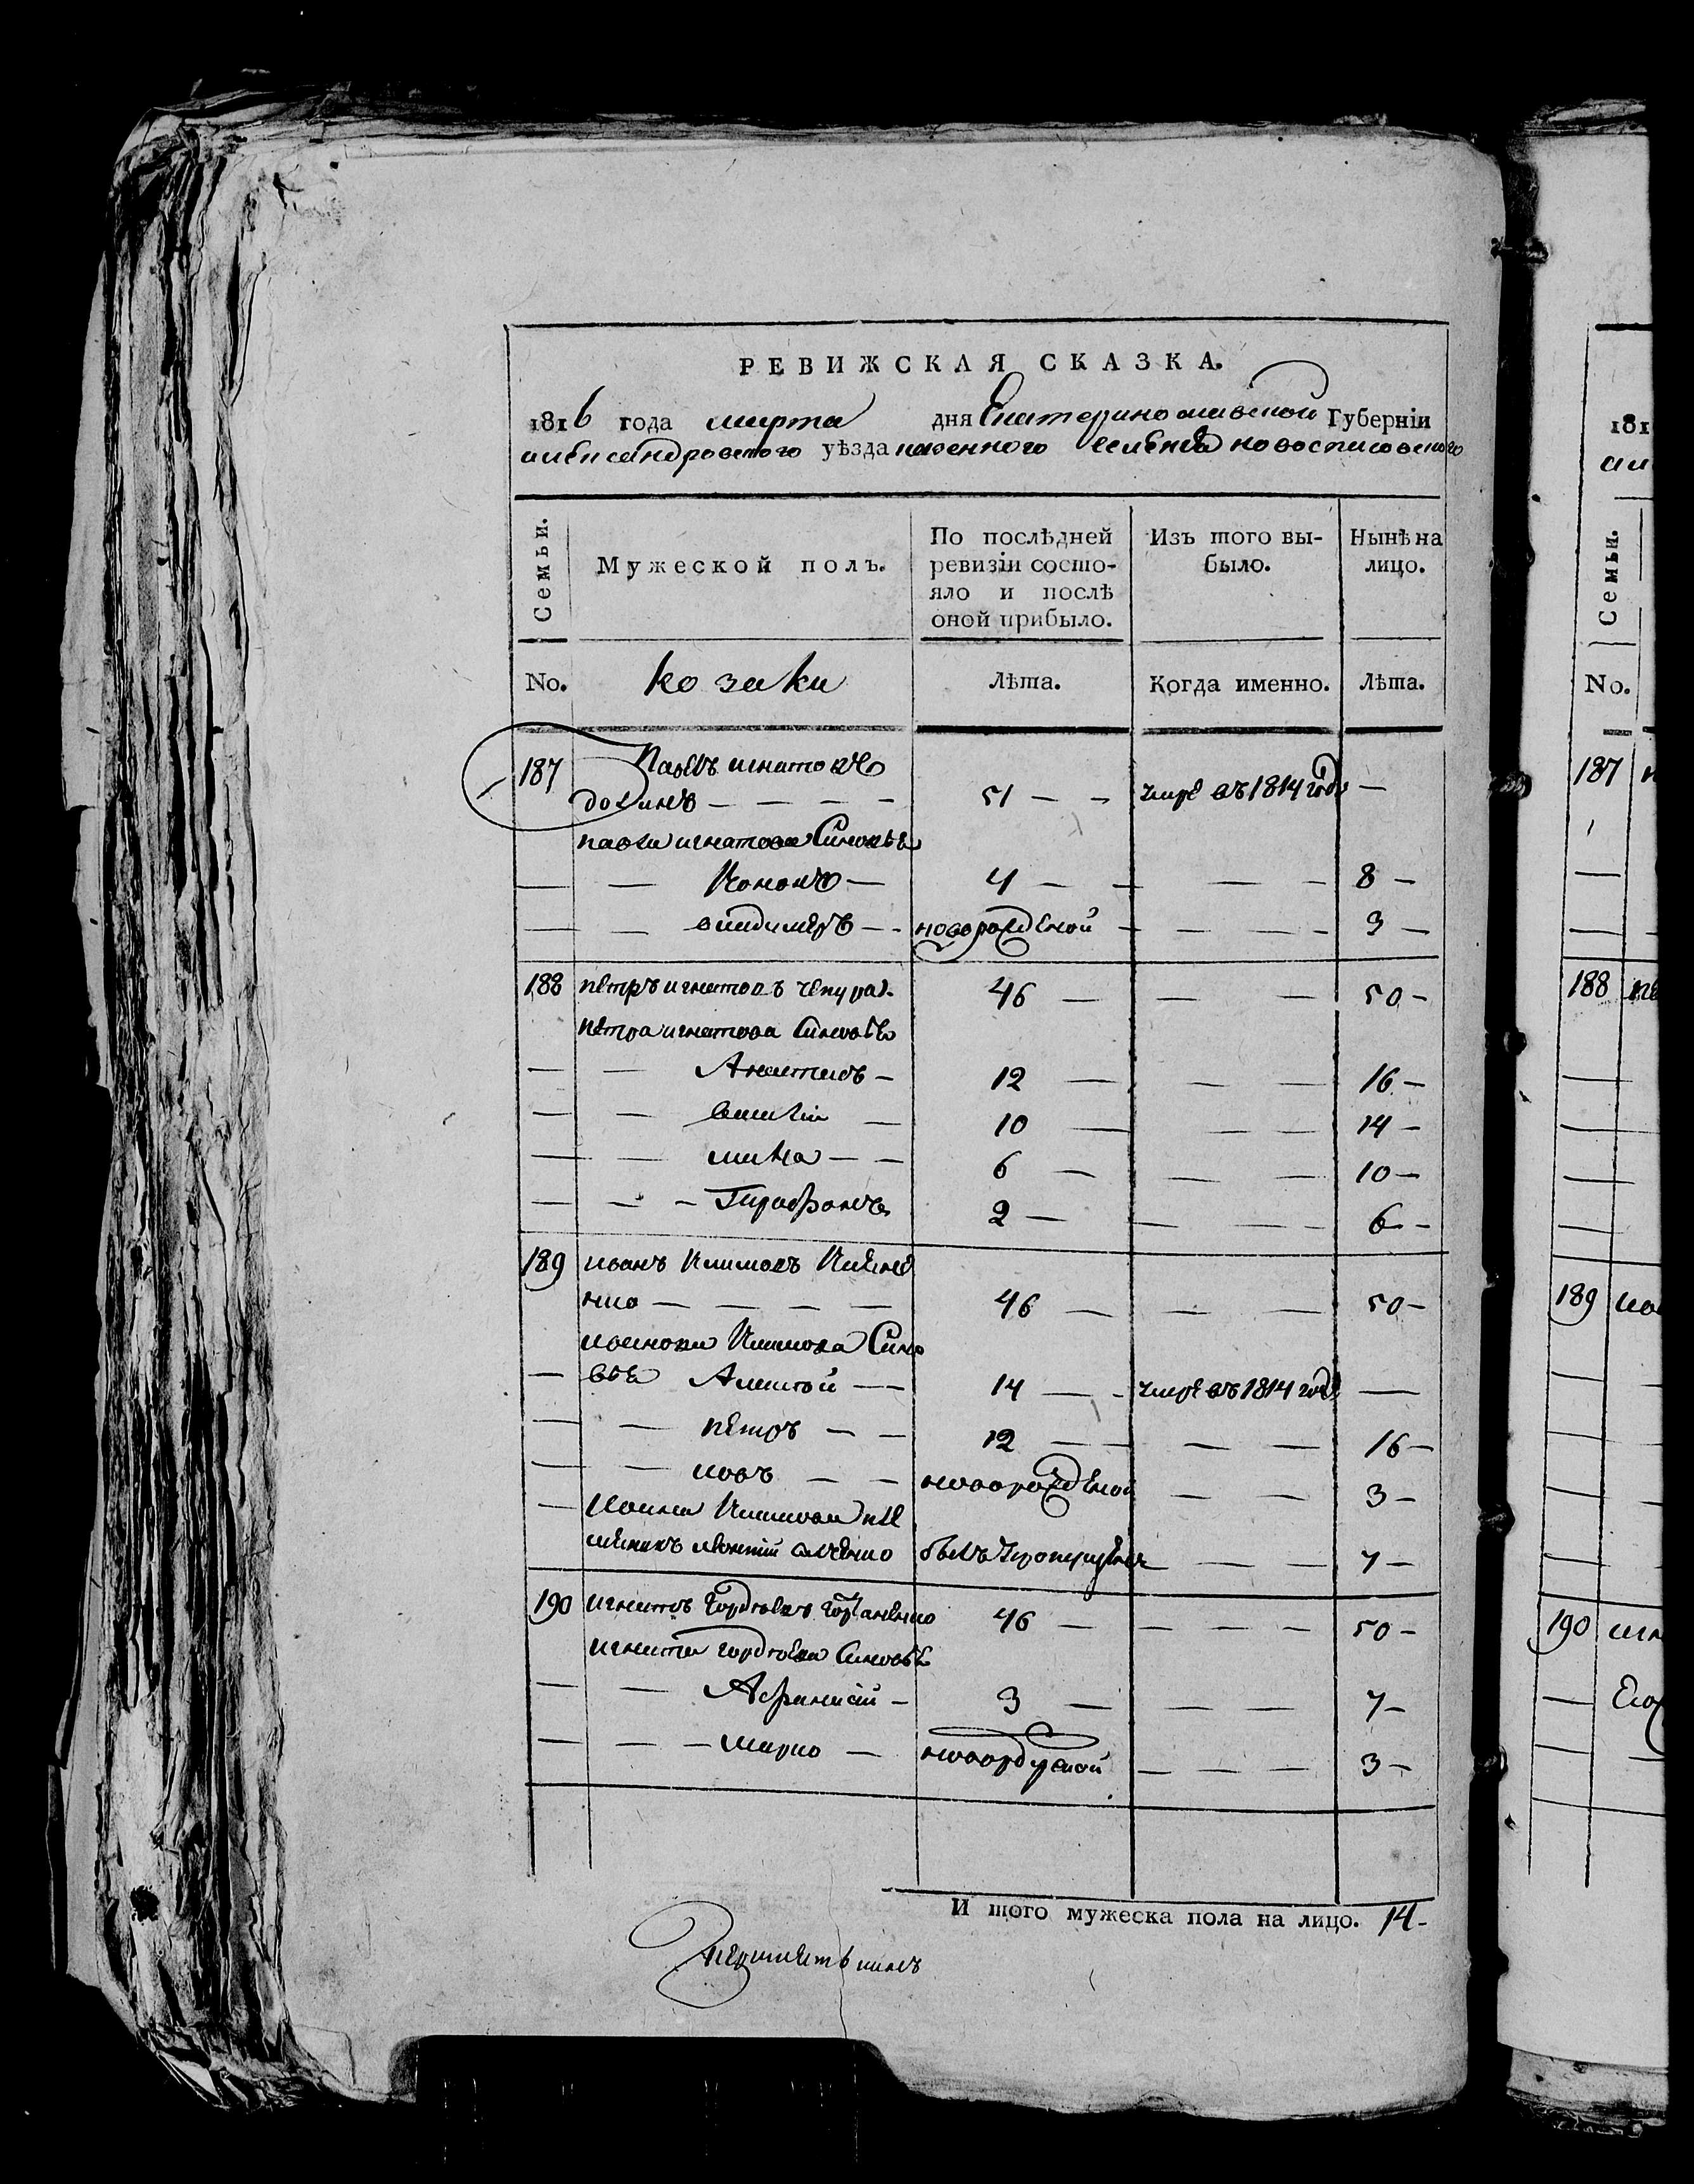 РЕВИЖСКАЯ СКАЗКА.
1816 года марта дня Екатеринославской Губерніи
александровского уѣзда казенного селенія новоспасовского
Семьи.
Мужеской полъ.
По послѣдней ревизіи состояло и послѣ оной прибыло.
Изъ того выбыло.
Нынѣ на лицо.
No. козаки Лѣта. Когда именно. Лѣта.
187 Павелъ игнатовъ
51 — — умре въ 1814 годе —
павла игнатова Синовья
— — Кононъ — 4 — — — — 8 —
— — владимеръ — — новорожденой — — — — 3 —
188 петръ игнатовъ 46 — — — 50 —
петра игнатова Синовья
— — Анатилъ — 12 — — — 16 —
— — василій — 10 — — — 14 —
— — — — 6 — — — 10 —
— — — Гарафонъ 2 — — — — 6 —
189 иванъ Климовъ
— — — — 46 — — — 50 —
Климова Сино
— вья Алексей — — 14 — — умре въ 1814 годе —
— — петръ — — 12 — — — — 16 —
— — иовъ — — новорожденой — — 3 —
— ивана Климова пле
меникъ леонтій былъ пропущенъ — — 7 —
190 игнатъ Гордеевъ 46 — — — — 50 —
игната гордеева Синовья
— — Афанасій — 3 — — — — 7 —
— — — марко — новорожденой — — — 3 —
И того мужеска пола на лицо. 14 —
181
No.
187
188
189
190